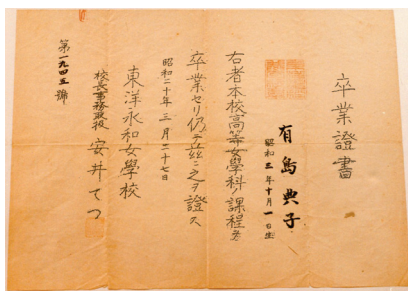 卒業證書
有島典子
昭和三年十月一日生
右者本校高等女學科ノ課程ヲ
卒業セリ仍テ茲ニ之ヲ證ス
昭和二十年三月二十七日
東洋永和女學校
校長事務取扱 安井てつ
第一九四五號